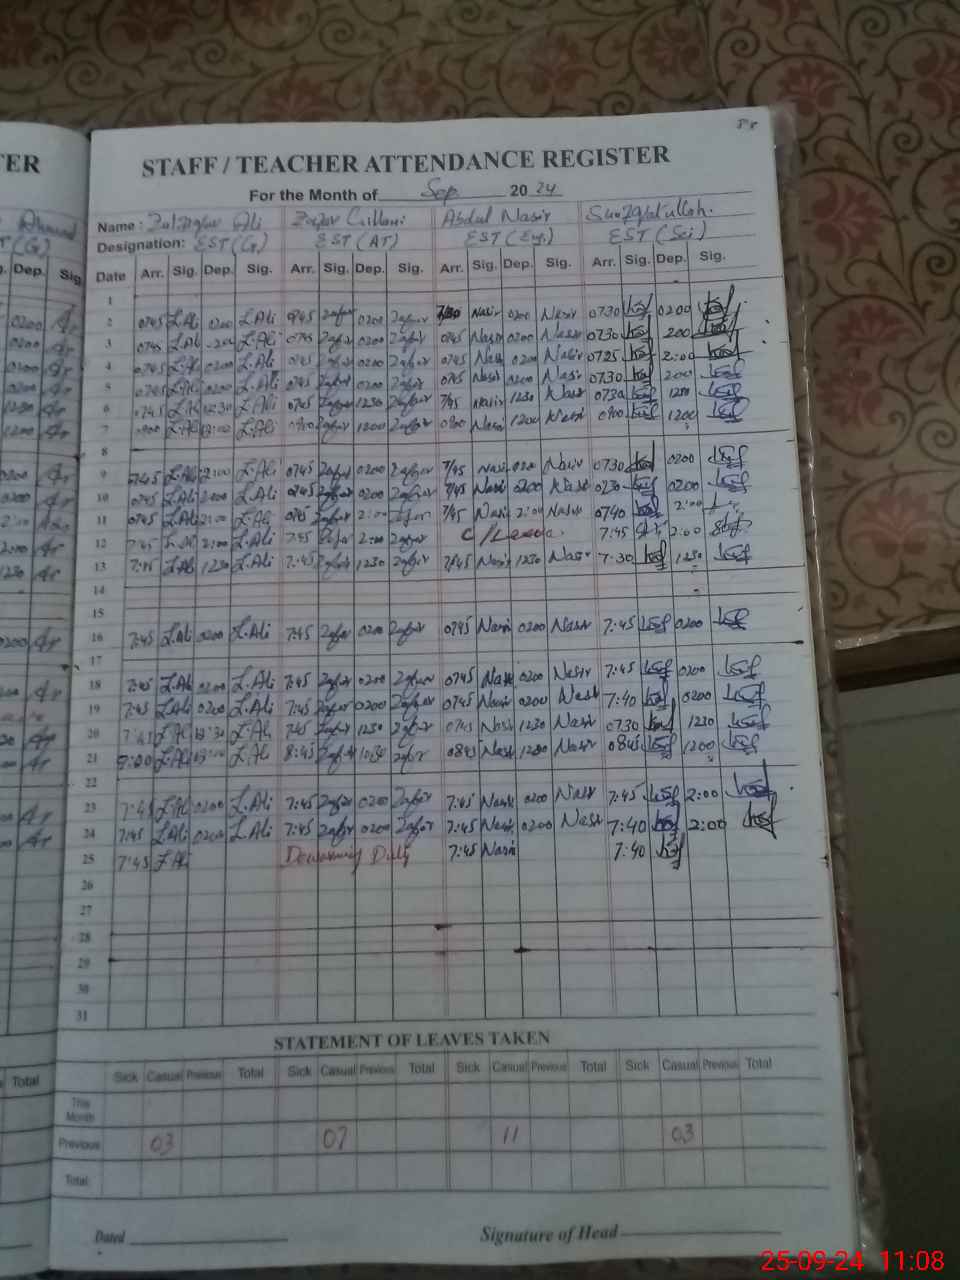 TER
STAFF / TEACHER ATTENDANCE REGISTER
For the Month of Sep 20 24
Name : Zulfiqar Ali Zafar Abdul Nasir
Designation: EST (G) EST (AT) EST (Eng) EST (Sci)
Dep. Sig. Date Arr. Sig. Dep. Sig. Arr. Sig. Dep. Sig. Arr. Sig. Dep. Sig. Arr. Sig. Dep. Sig.
1
0200 2 0745 Z.Ali 0200 Z.Ali 0745 Zafar 0200 Zafar 7/30 Nasir 0200 Nasir 0730 0200
0200 3 0745 Z.Ali 0200 Z.Ali 0745 Zafar 0200 Zafar 0745 Nasir 0200 Nasir 0730 200
0200 4 0745 Z.Ali 0200 Z.Ali 0745 Zafar 0200 Zafar 0745 Nasir 0200 Nasir 0725 2:00
0200 5 0745 Z.Ali 0200 Z.Ali 0745 Zafar 0200 Zafar 0745 Nasir 0200 Nasir 0730 200
1230 6 0745 Z.Ali 1230 Z.Ali 0745 Zafar 1230 Zafar 7/45 Nasir 1230 Nasir 0730 1230
1200 7 0900 Z.Ali 12:00 Z.Ali 0900 Zafar 1200 Zafar 0900 Nasir 1200 Nasir 0900 1200
8
0200 9 0745 Z.Ali 2:00 Z.Ali 0745 Zafar 0200 Zafar 7/45 Nasir 0200 Nasir 0730 0200
0200 10 0745 Z.Ali 2:00 Z.Ali 0745 Zafar 0200 Zafar 7/45 Nasir 0200 Nasir 0730 0200
2:00 11 0745 Z.Ali 2:00 Z.Ali 0745 Zafar 2:00 Zafar 7/45 Nasir 2:00 Nasir 0740 2:00
2:00 12 7:45 Z.Ali 2:00 Z.Ali 7:45 Zafar 2:00 Zafar C/Leave 7:45 2:00
1230 13 7:45 Z.Ali 1230 Z.Ali 7:45 Zafar 1230 Zafar 7/45 Nasir 1230 Nasir 7:30 1230
14
15
0200 16 7:45 Z.Ali 0200 Z.Ali 7:45 Zafar 0200 Zafar 0745 Nasir 0200 Nasir 7:45 0200
17
18 7:45 Z.Ali 0200 Z.Ali 7:45 Zafar 0200 Zafar 0745 Nasir 0200 Nasir 7:45 0200
19 7:45 Z.Ali 0200 Z.Ali 7:45 Zafar 0200 Zafar 0745 Nasir 0200 Nasir 7:40 0200
20 7:45 Z.Ali 12:30 Z.Ali 745 Zafar 1230 Zafar 0745 Nasir 1230 Nasir 0730 1230
21 Z.Ali Z.Ali 8:45 Zafar Zafar 0845 Nasir 1200 Nasir 0845 1200
22
23 7:45 Z.Ali 0200 Z.Ali 7:45 Zafar 0200 Zafar 7:45 Nasir 0200 Nasir 7:45 2:00
24 7:45 Z.Ali 0200 Z.Ali 7:45 Zafar 0200 Zafar 7:45 Nasir 0200 Nasir 7:40 2:00
25 7:45 Z.Ali Deworming Duty 7:45 Nasir 7:40
26
27
28
29
30
31
STATEMENT OF LEAVES TAKEN
Total Sick Casual Previous Total Sick Casual Previous Total Sick Casual Previous Total Sick Casual Previous Total
This Month
Previous 03 07 11 03
Total
Dated Signature of Head
25-09-24 11:08